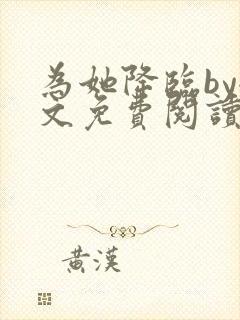 為她降臨by
文免費閱讀
黃漢